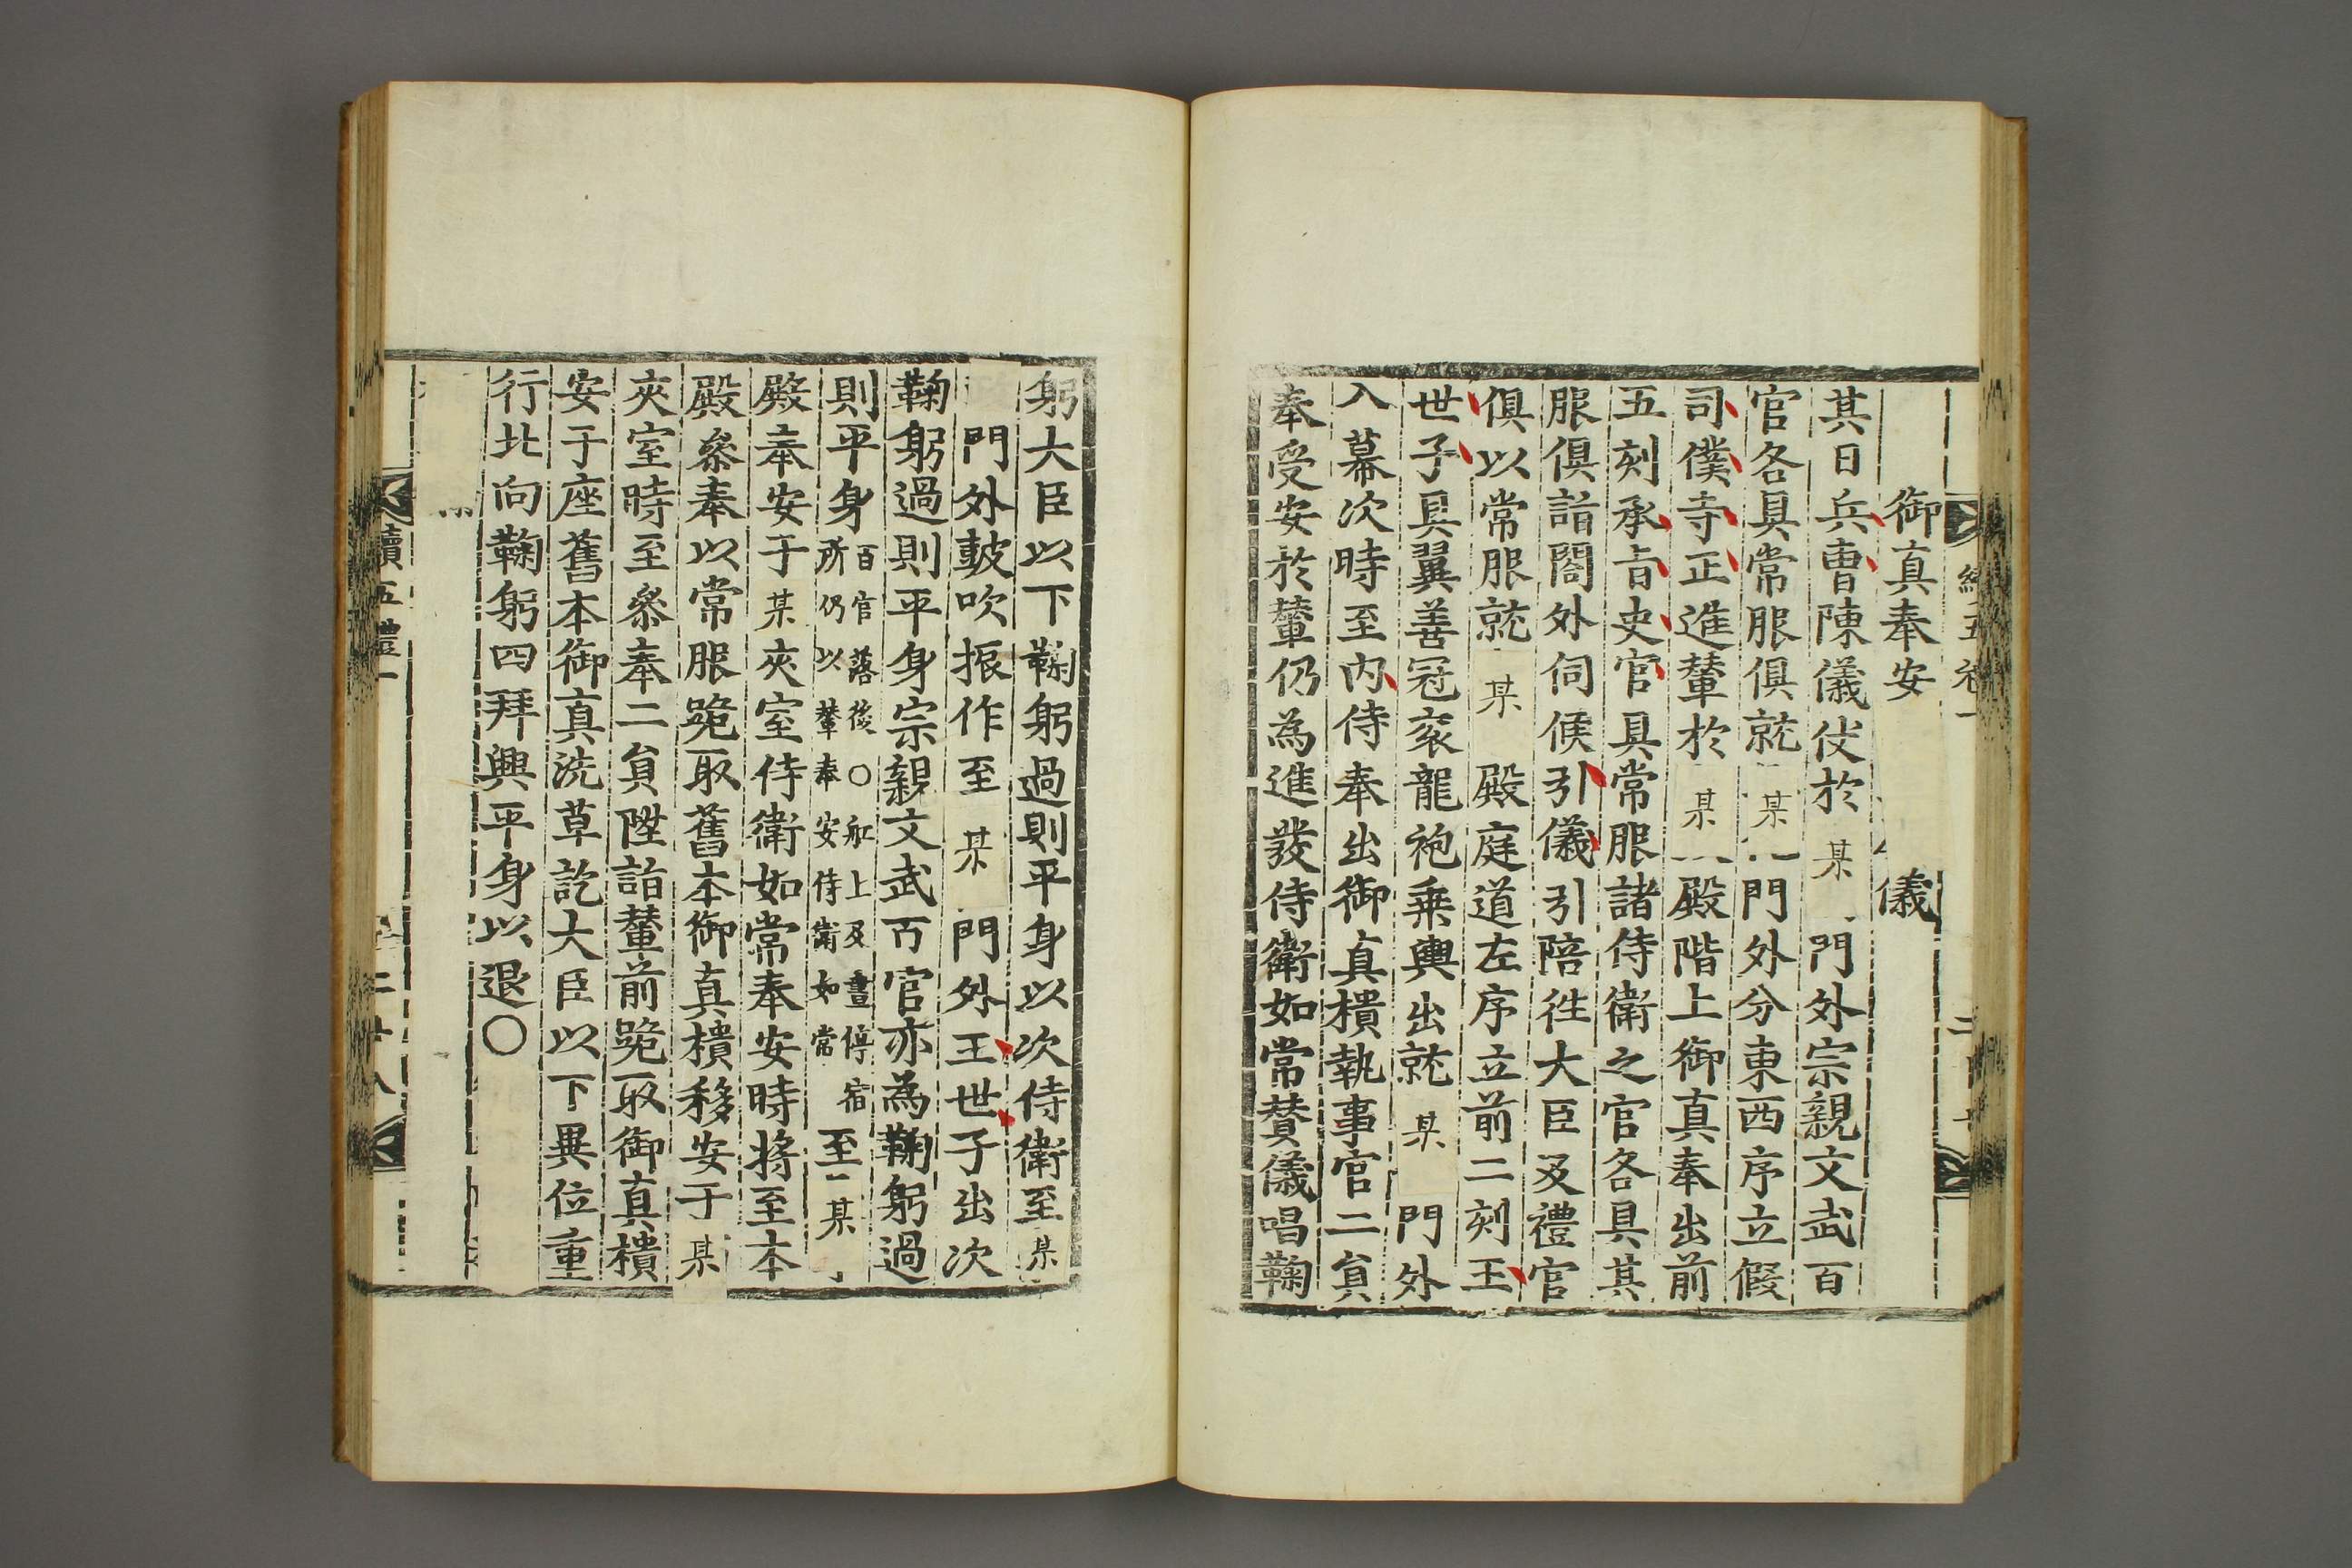 御真奉安 儀
其日兵曹陳儀仗於 某 門外宗親文武百
官各具常服俱就 某 門外分東西序立假
司僕寺正進輦於 某 殿階上御真奉出前
五刻承旨史官具常服諸侍衛之官各具其
服俱詣閤外伺候引儀引陪往大臣及禮官
俱以常服就 某 殿庭道左序立前二刻王
世子具翼善冠衮龍袍乗輿出就 某 門外
入幕次時至内侍奉出御真樻執事官二負
奉受安於輦仍為進發侍衛如常賛儀唱鞠
躬大臣以下鞠躬過則平身以次侍衛至某
門外鼓吹振作至 某 門外王世子出次
鞠躬過則平身宗親文武百官亦為鞠躬過
則平身百官落後○舡上及晝停宿
所仍以輦奉安侍衛如常至某
殿奉安于某夾室侍衛如常奉安時將至本
殿叅奉以常服跪取舊本御真樻移安于某
夾室時至叅奉二負陞詣輦前跪取御真樻
安于座舊本御真洗草訖大臣以下異位重
行北向鞠躬四拜興平身以退○
續五禮一
二十八